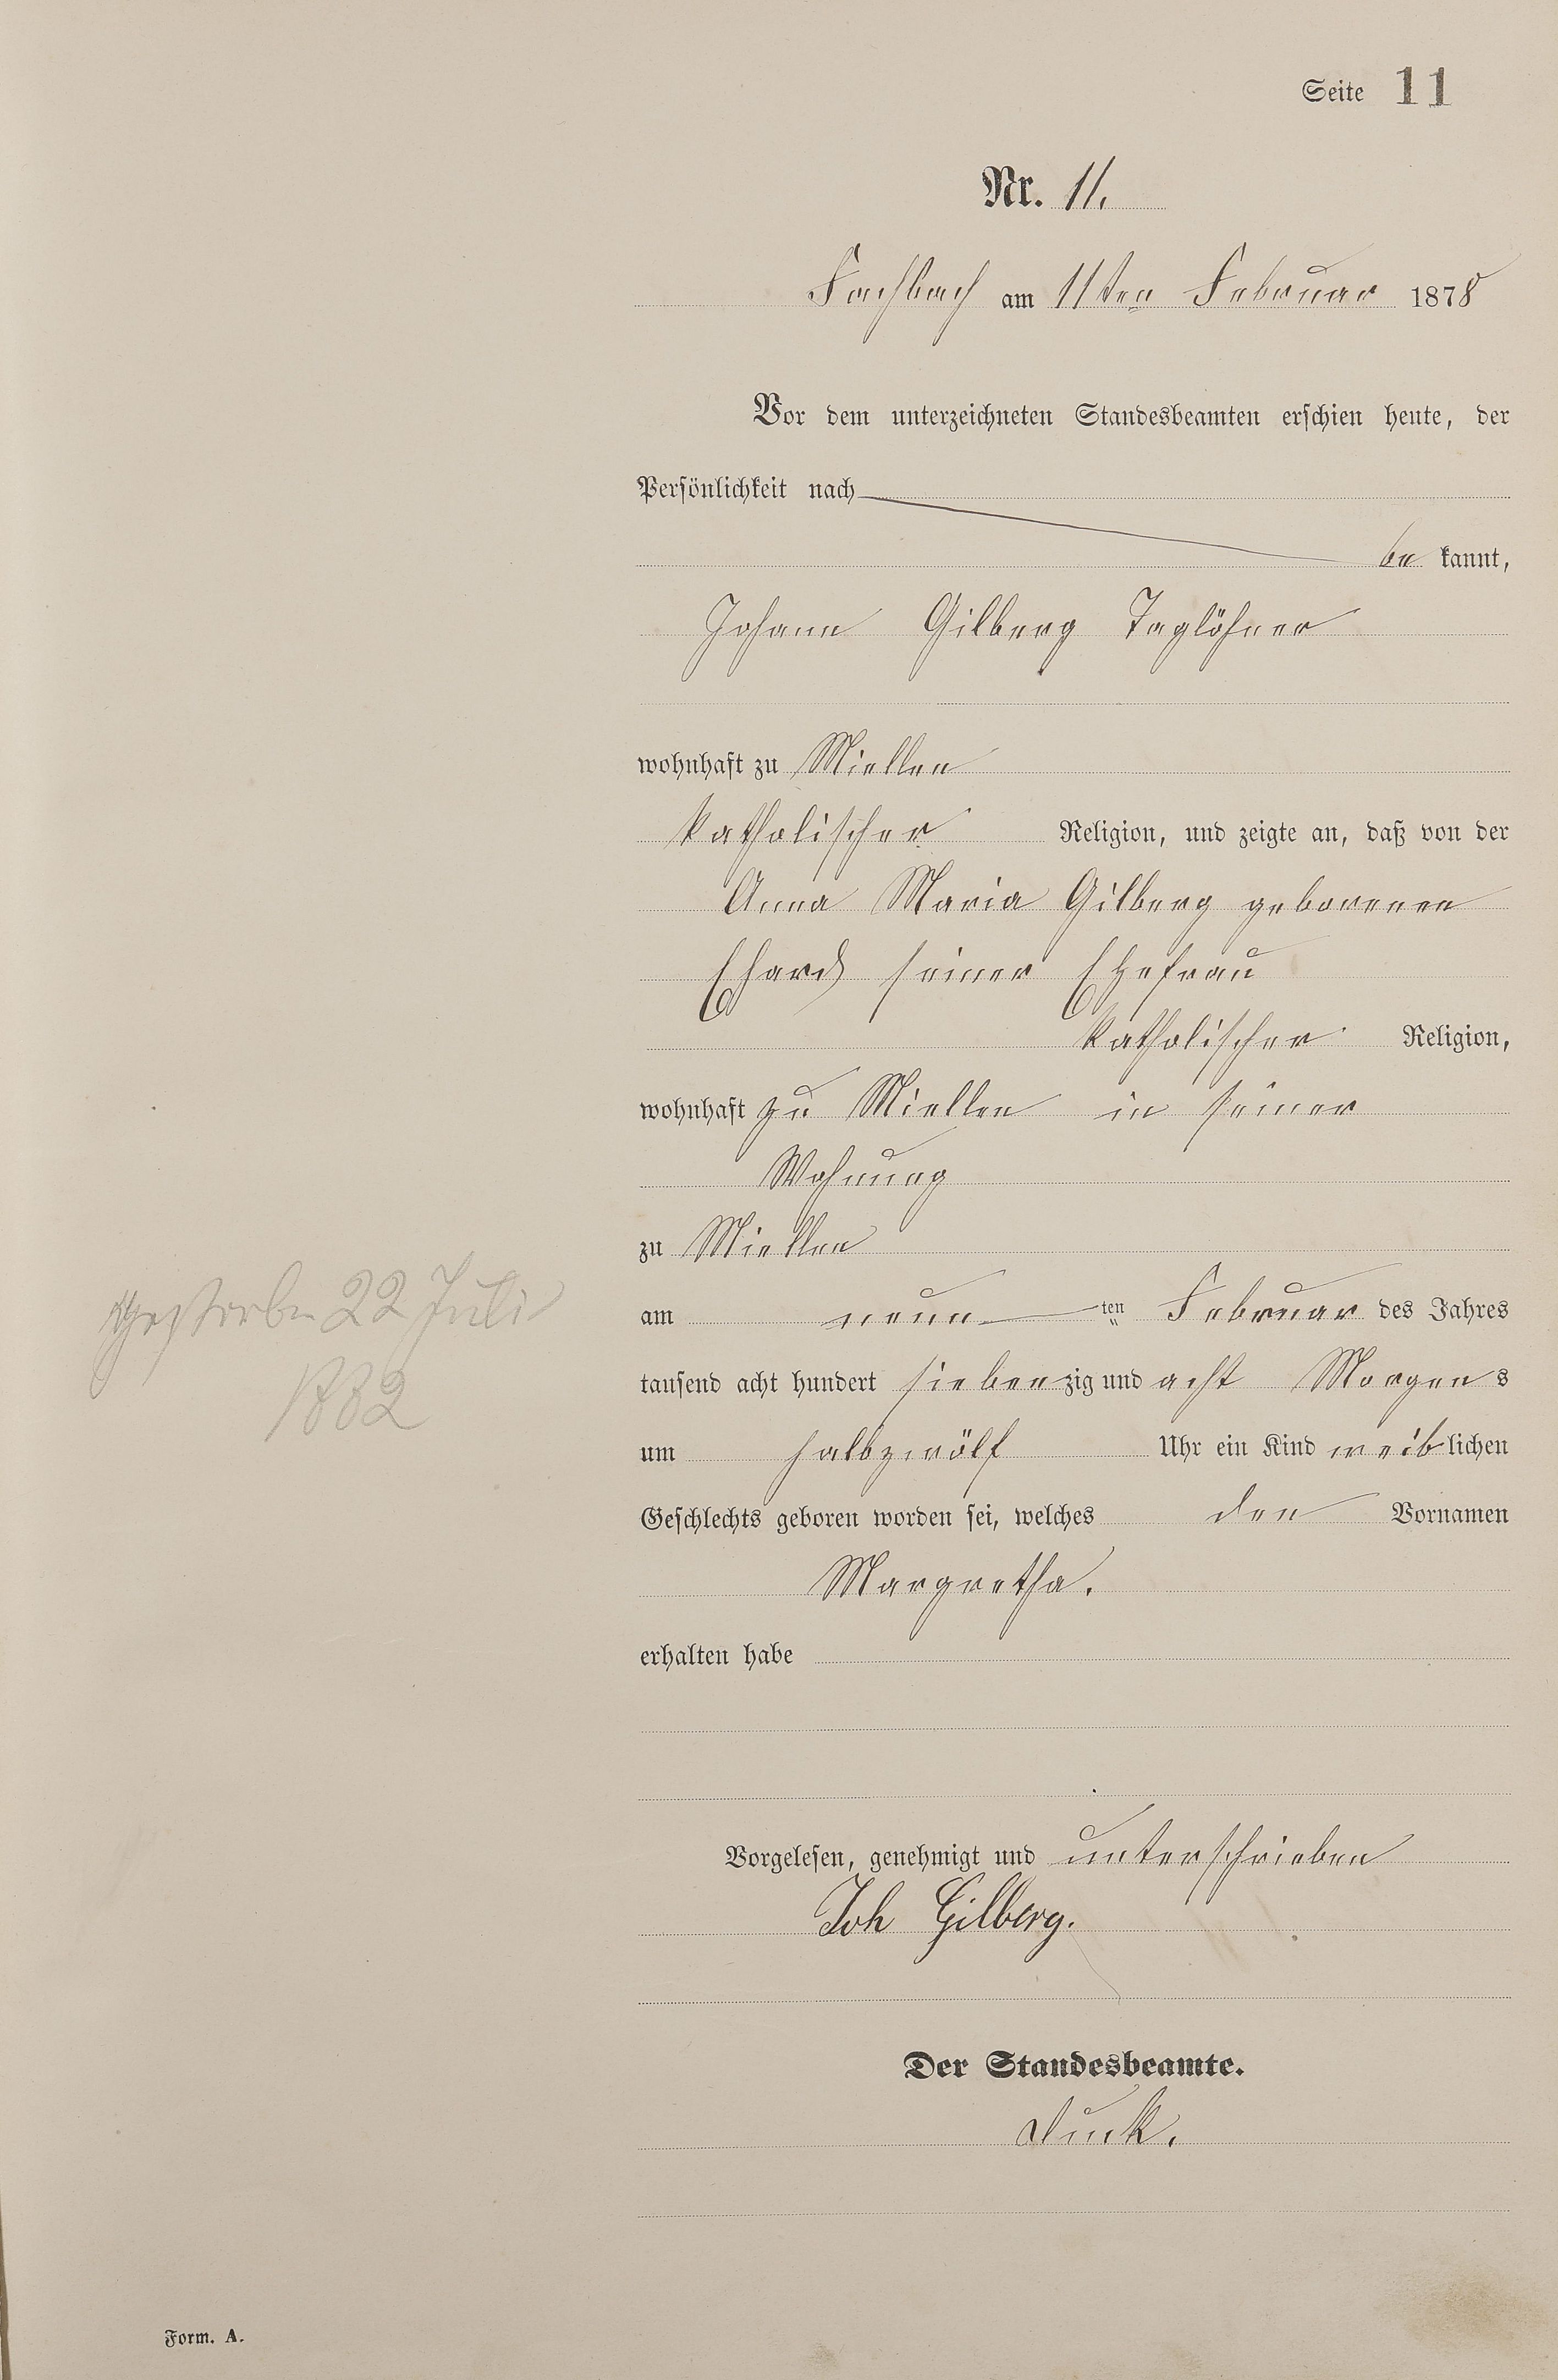 Seite 11
Nr. 11.
Fachbach am 11ten Februar 1878
Vor dem unterzeichneten Standesbeamten erschien heute, der
Persönlichkeit nach
be kannt,
Johann Gilberg Taglöhner
wohnhaft zu Miellen
katholischer Religion, und zeigte an, daß von der
Anna Maria Gilberg geborenen
Ehard seiner Ehefrau
katholischer Religion,
wohnhaft zu Miellen in seiner
Wohnung
zu Miellen
am neun ten Februar des Jahres
tausend acht hundert siebenzig und acht Morgens
um halbzwölf Uhr ein Kind weiblichen
Geschlechts geboren worden sei, welches den Vornamen
Margretha.
erhalten habe
Gestorben 22 Juli
1882
Vorgelesen, genehmigt und unterschrieben
Joh Gilberg.
Der Standesbeamte.
Form. A.